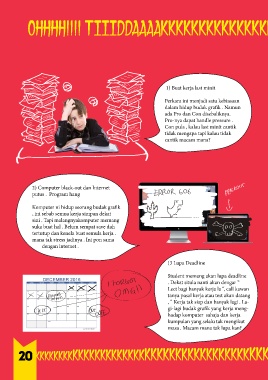 OHHHH!!!! TIIIDDAAAAKKKKKKKKKKKKKK
1) Buat kerja last minit
Perkara ini menjadi satu kebiasaan
dalam hidup budak grafik . Namun
ada Pro dan Con disebaliknya.
Pro-nya dapat handle pressure .
Con pula , kalau last minit cantik
tidak mengapa tapi kalau tidak
cantik macam mana?
2) Computer black-out dan Internet
putus . Program hang
Komputer si hidup seorang budak grafik
, ini sebab semua kerja simpan dekat
sini . Tapi malangnya komputer memang
suka buat hal . Belum sempat save dah
tertutup dan kenala buat semula kerja .
mana tak stress jadinya . Ini pun sama
dengan internet .
ERROR 606
3) Lupa Deadline
Student memang akan lupa deadline
. Dekat situla nanti akan dengar "
Last lagi banyak kerja la ", call kawan
tanya pasal kerja atau test akan datang
. " Kerja tak siap dan banyak lagi . La-
gi-lagi budak grafik yang kerja meng-
hadap komputer sahaja dan kerja
kumpulan yang selalu tak mengikut
masa . Macam mana tak lupa kan?
DECEMBER 2015
OMG!!
20 KKKKKKKKKKKKKKKKKKKKKKKKKKKKKKKKKKKK